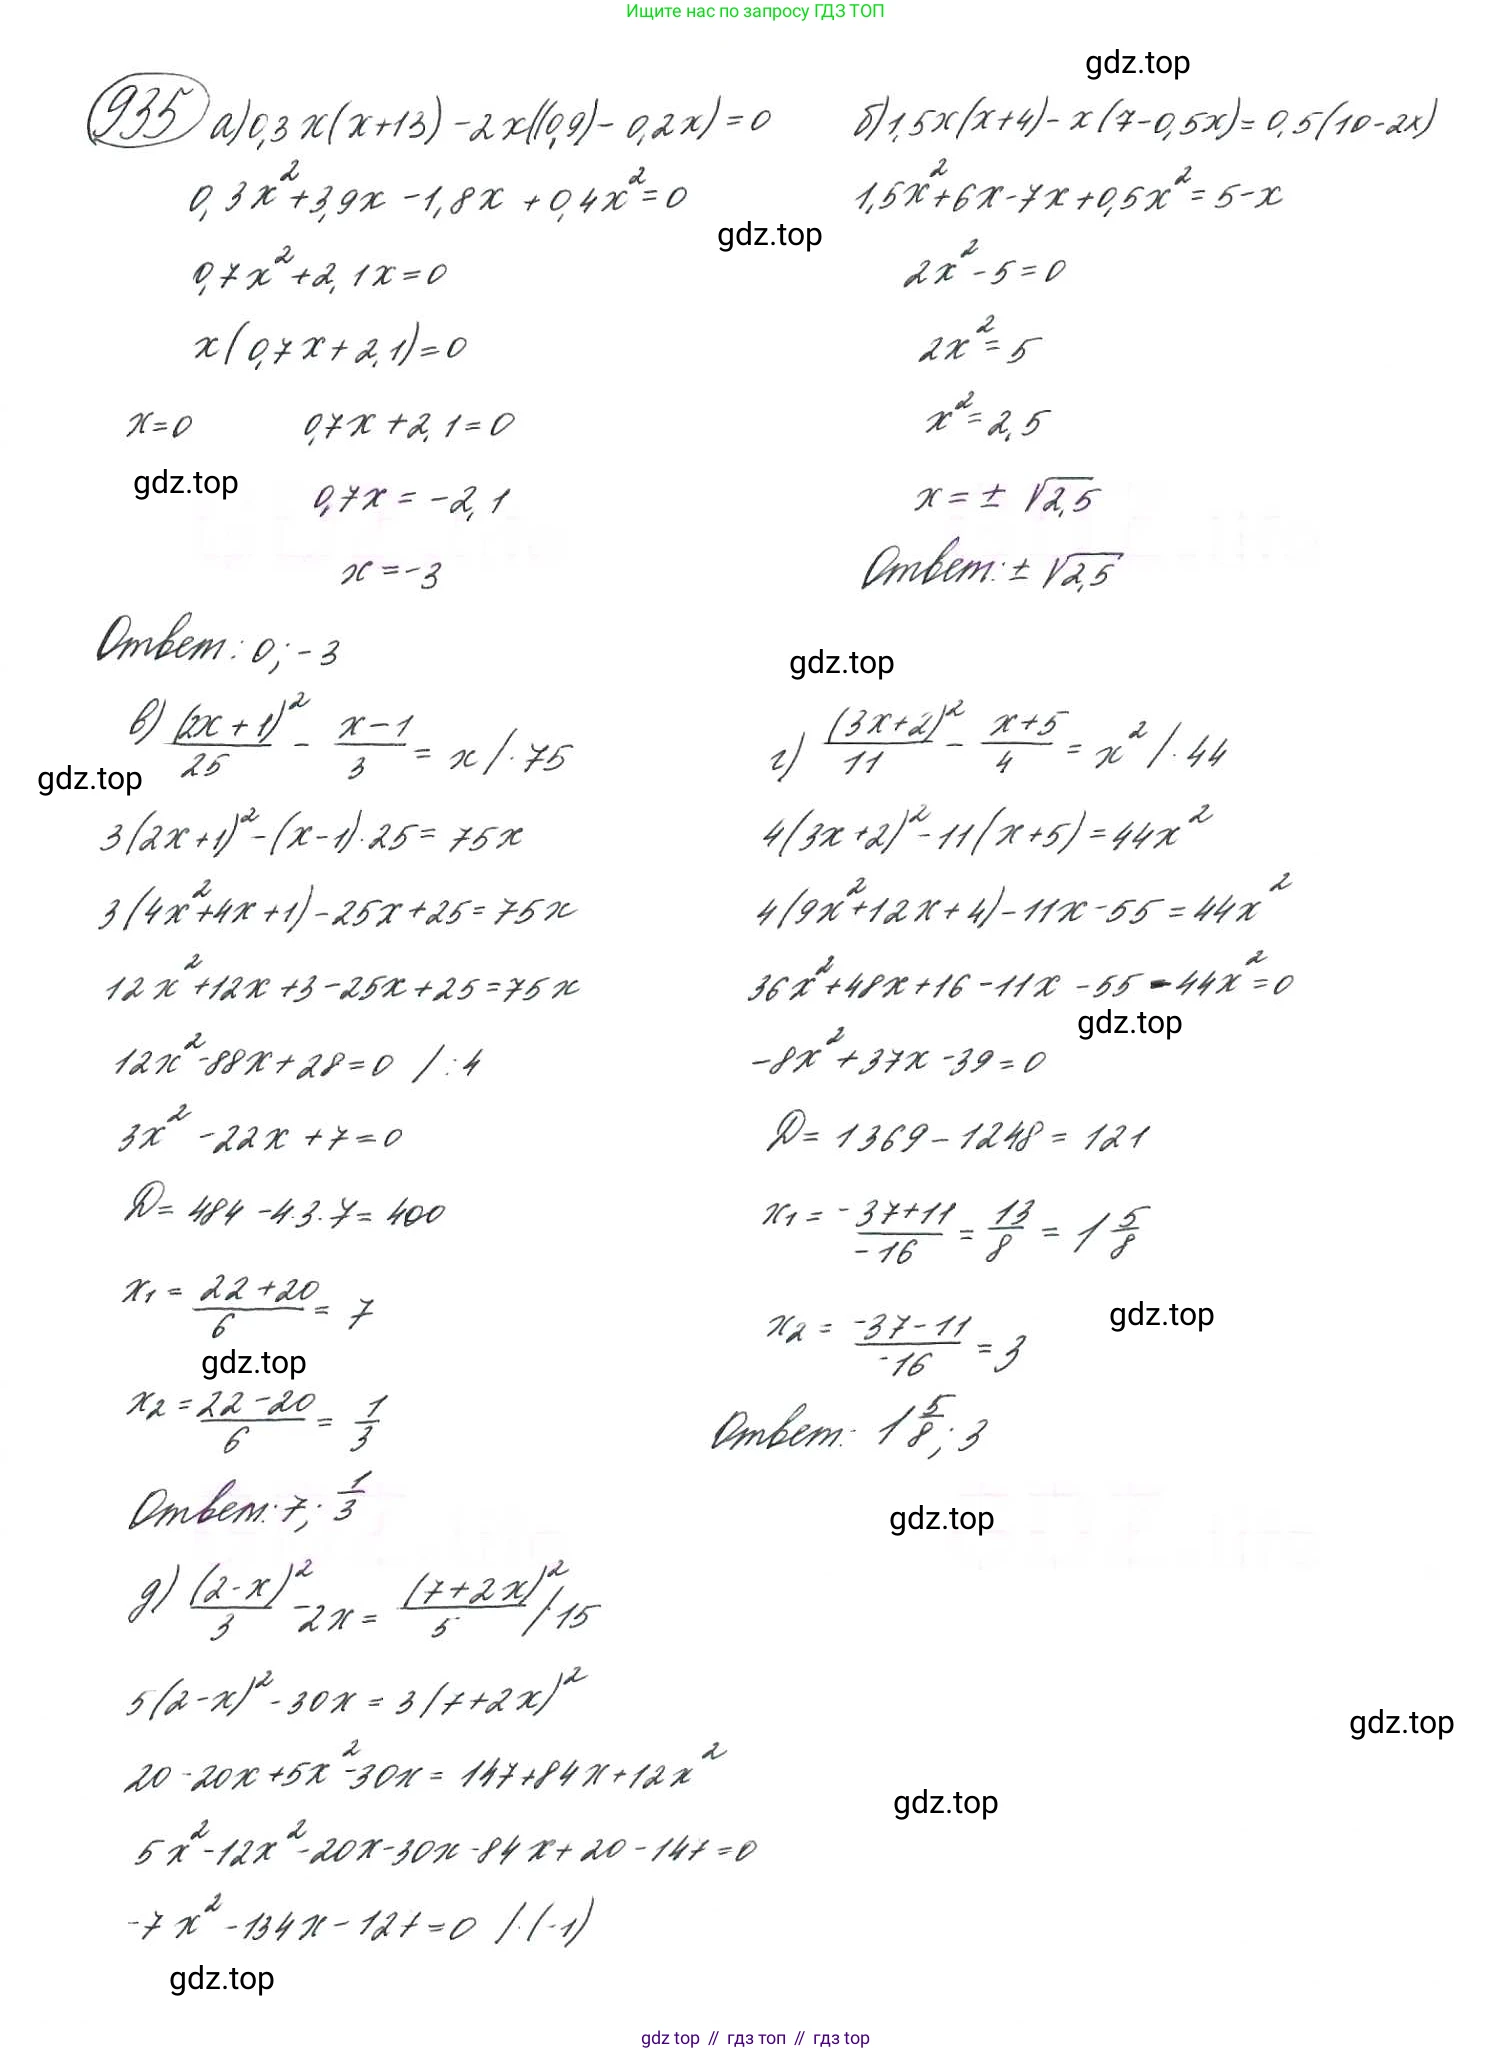 Ищите нас по запросу ГДЗ ТОП
gdz.top
935 а) 0,3x(x+13) - 2x((0,9) - 0,2x) = 0
0,3x² + 3,9x - 1,8x + 0,4x² = 0
0,7x² + 2,1x = 0
x(0,7x + 2,1) = 0
x=0 0,7x + 2,1 = 0
gdz.top
0,7x = -2,1
x = -3
Ответ: 0; -3
б) 1,5x(x+4) - x(7-0,5x) = 0,5(10-2x)
1,5x² + 6x - 7x + 0,5x² = 5 - x
gdz.top
2x² - 5 = 0
2x² = 5
x² = 2,5
x = ± √2,5
Ответ: ± √2,5
gdz.top
в) (2x+1)²/25 - (x-1)/3 = x /·75
gdz.top
3(2x+1)² - (x-1)·25 = 75x
3(4x²+4x+1) - 25x + 25 = 75x
12x² + 12x + 3 - 25x + 25 = 75x
12x² - 88x + 28 = 0 /:4
3x² - 22x + 7 = 0
D = 484 - 4·3·7 = 400
x₁ = (22+20)/6 = 7
gdz.top
x₂ = (22-20)/6 = 1/3
Ответ: 7; 1/3
г) (3x+2)²/11 - (x+5)/4 = x² /·44
4(3x+2)² - 11(x+5) = 44x²
4(9x²+12x+4) - 11x - 55 = 44x²
36x² + 48x + 16 - 11x - 55 - 44x² = 0
gdz.top
-8x² + 37x - 39 = 0
D = 1369 - 1248 = 121
x₁ = (-37+11)/-16 = 13/8 = 1 5/8
gdz.top
x₂ = (-37-11)/-16 = 3
Ответ: 1 5/8; 3
gdz.top
д) (2-x)²/3 - 2x = (7+2x)²/5 /·15
5(2-x)² - 30x = 3(7+2x)²
gdz.top
20 - 20x + 5x² - 30x = 147 + 84x + 12x²
gdz.top
5x² - 12x² - 20x - 30x - 84x + 20 - 147 = 0
-7x² - 134x - 127 = 0 /·(-1)
gdz.top
gdz top // гдз топ // гдз top